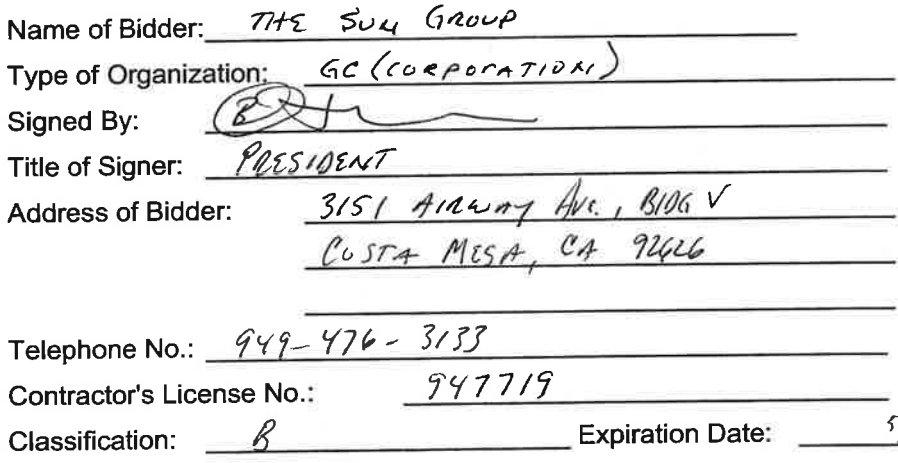 Name of Bidder: THE SUN GROUP
Type of Organization: GC (CORPORATION)
Signed By:
Title of Signer: PRESIDENT
Address of Bidder: 3151 AIRWAY AVE., BLDG V
COSTA MESA, CA 92626
Telephone No.: 949-476-3133
Contractor's License No.: 947719
Classification: B Expiration Date: 5